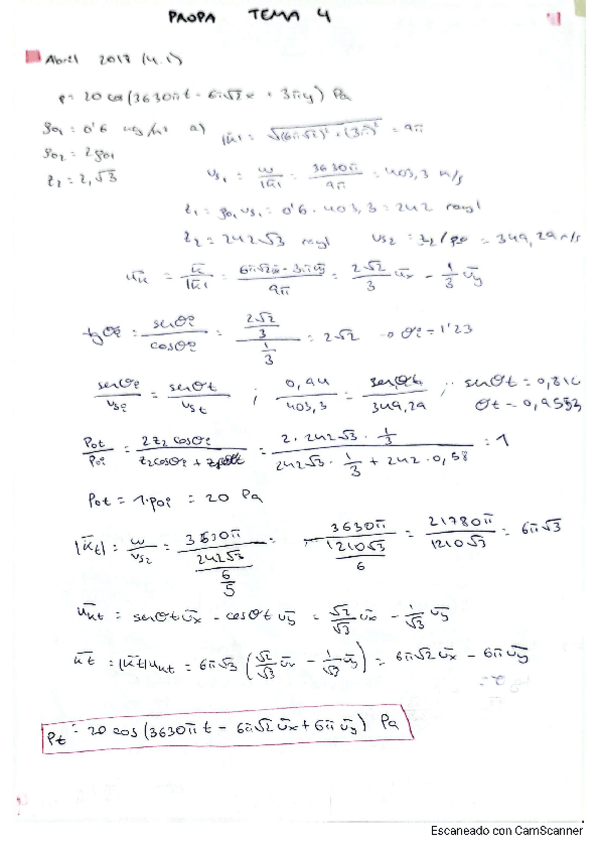 PROPA TEMA 4
Abril 2018 (4.1)
p = 20 cos(3630π t - 6π√2 x + 3π y) Pa
ρ01 = 0'6 kg/m³ a) |k̄| = √((6π√2)² + (3π)²) = 9π
ρ02 = 2ρ01
z2 = z1√3
vs1 = ω/|k̄| = 3630π/9π = 403,3 m/s
z1 = ρ01 vs1 = 0'6 · 403,3 = 242 rayl
z2 = 242√3 rayl vs2 = z2/ρ0 = 349,29 m/s
ūk = k̄/|k̄| = (6π√2 ūx - 3π ūy)/9π = 2√2/3 ūx - 1/3 ūy
tgθi = senθi/cosθi = (2√2/3)/(1/3) = 2√2 → θi = 1'23
senθi/vsi = senθt/vst ; 0,94/403,3 = senθt/349,29 ; senθt = 0,816
θt = 0,9553
Pot/Poi = 2z2 cosθi/(z2 cosθi + z1 cosθt) = (2 · 242√3 · 1/3)/(242√3 · 1/3 + 242 · 0,58) = 1
Pot = 1·Poi = 20 Pa
|k̄t| = ω/vs2 = 3630π/(242√3/(6/5)) = 3630π/(1210√3/6) = 21780π/1210√3 = 6π√3
ūkt = senθt ūx - cosθt ūy = √2/√3 ūx - 1/√3 ūy
k̄t = |k̄t| ūkt = 6π√3 (√2/√3 ūx - 1/√3 ūy) = 6π√2 ūx - 6π ūy
Pt = 20 cos(3630π t - 6π√2 ūx + 6π ūy) Pa
Escaneado con CamScanner